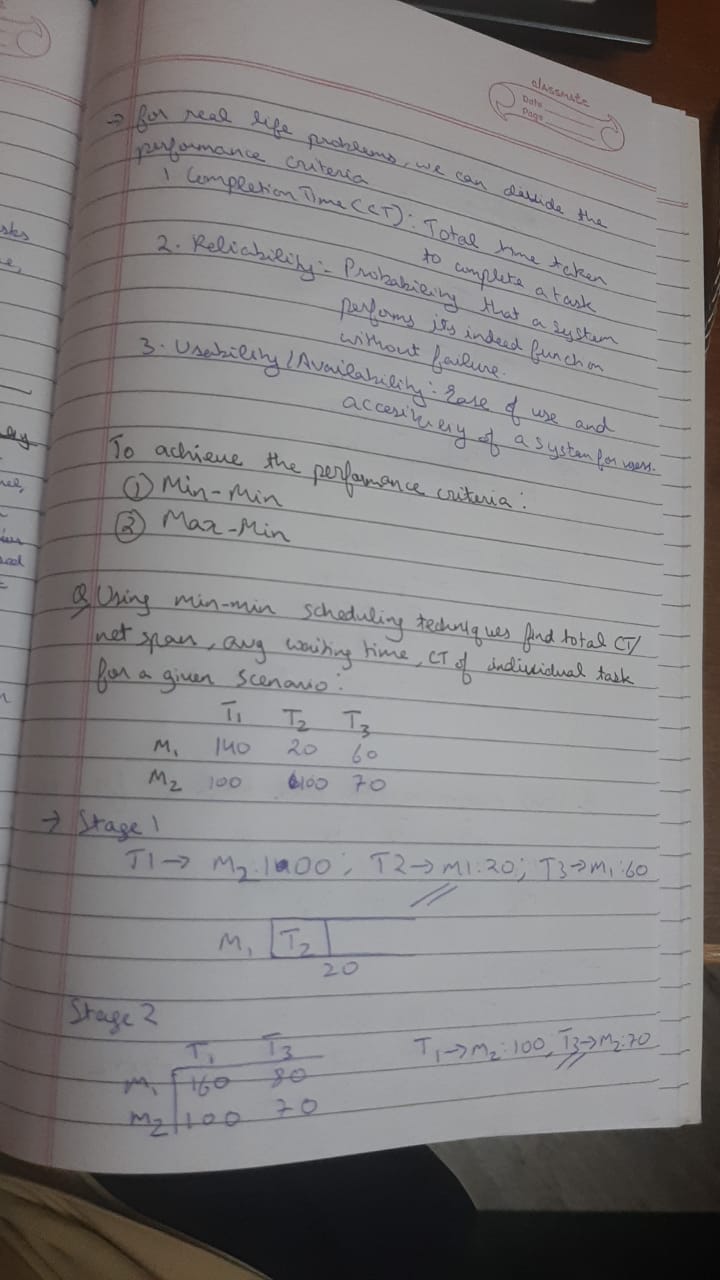 classmate
Date
Page
→ for real life problems, we can divide the
performance criteria
1 Completion Time (CT): Total time taken
to complete a task
2. Reliability:- Probability that a system
performs its indeed function
without failure.
3. Usability/Availability: Ease of use and
of a system for users.
To achieve the performance criteria:
① Min-Min
② Max-Min
Q Using min-min scheduling techniques find total CT/
net span, avg waiting time, CT of individual task
for a given scenario:
T1 T2 T3
M1 140 20 60
M2 100 100 70
→ Stage 1
T1→ M2:100; T2→M1:20; T3→M1:60
M1 T2
20
Stage 2
T1 T3
T1→M2:100, T3→M2:70
M1 160 80
M2 100 70